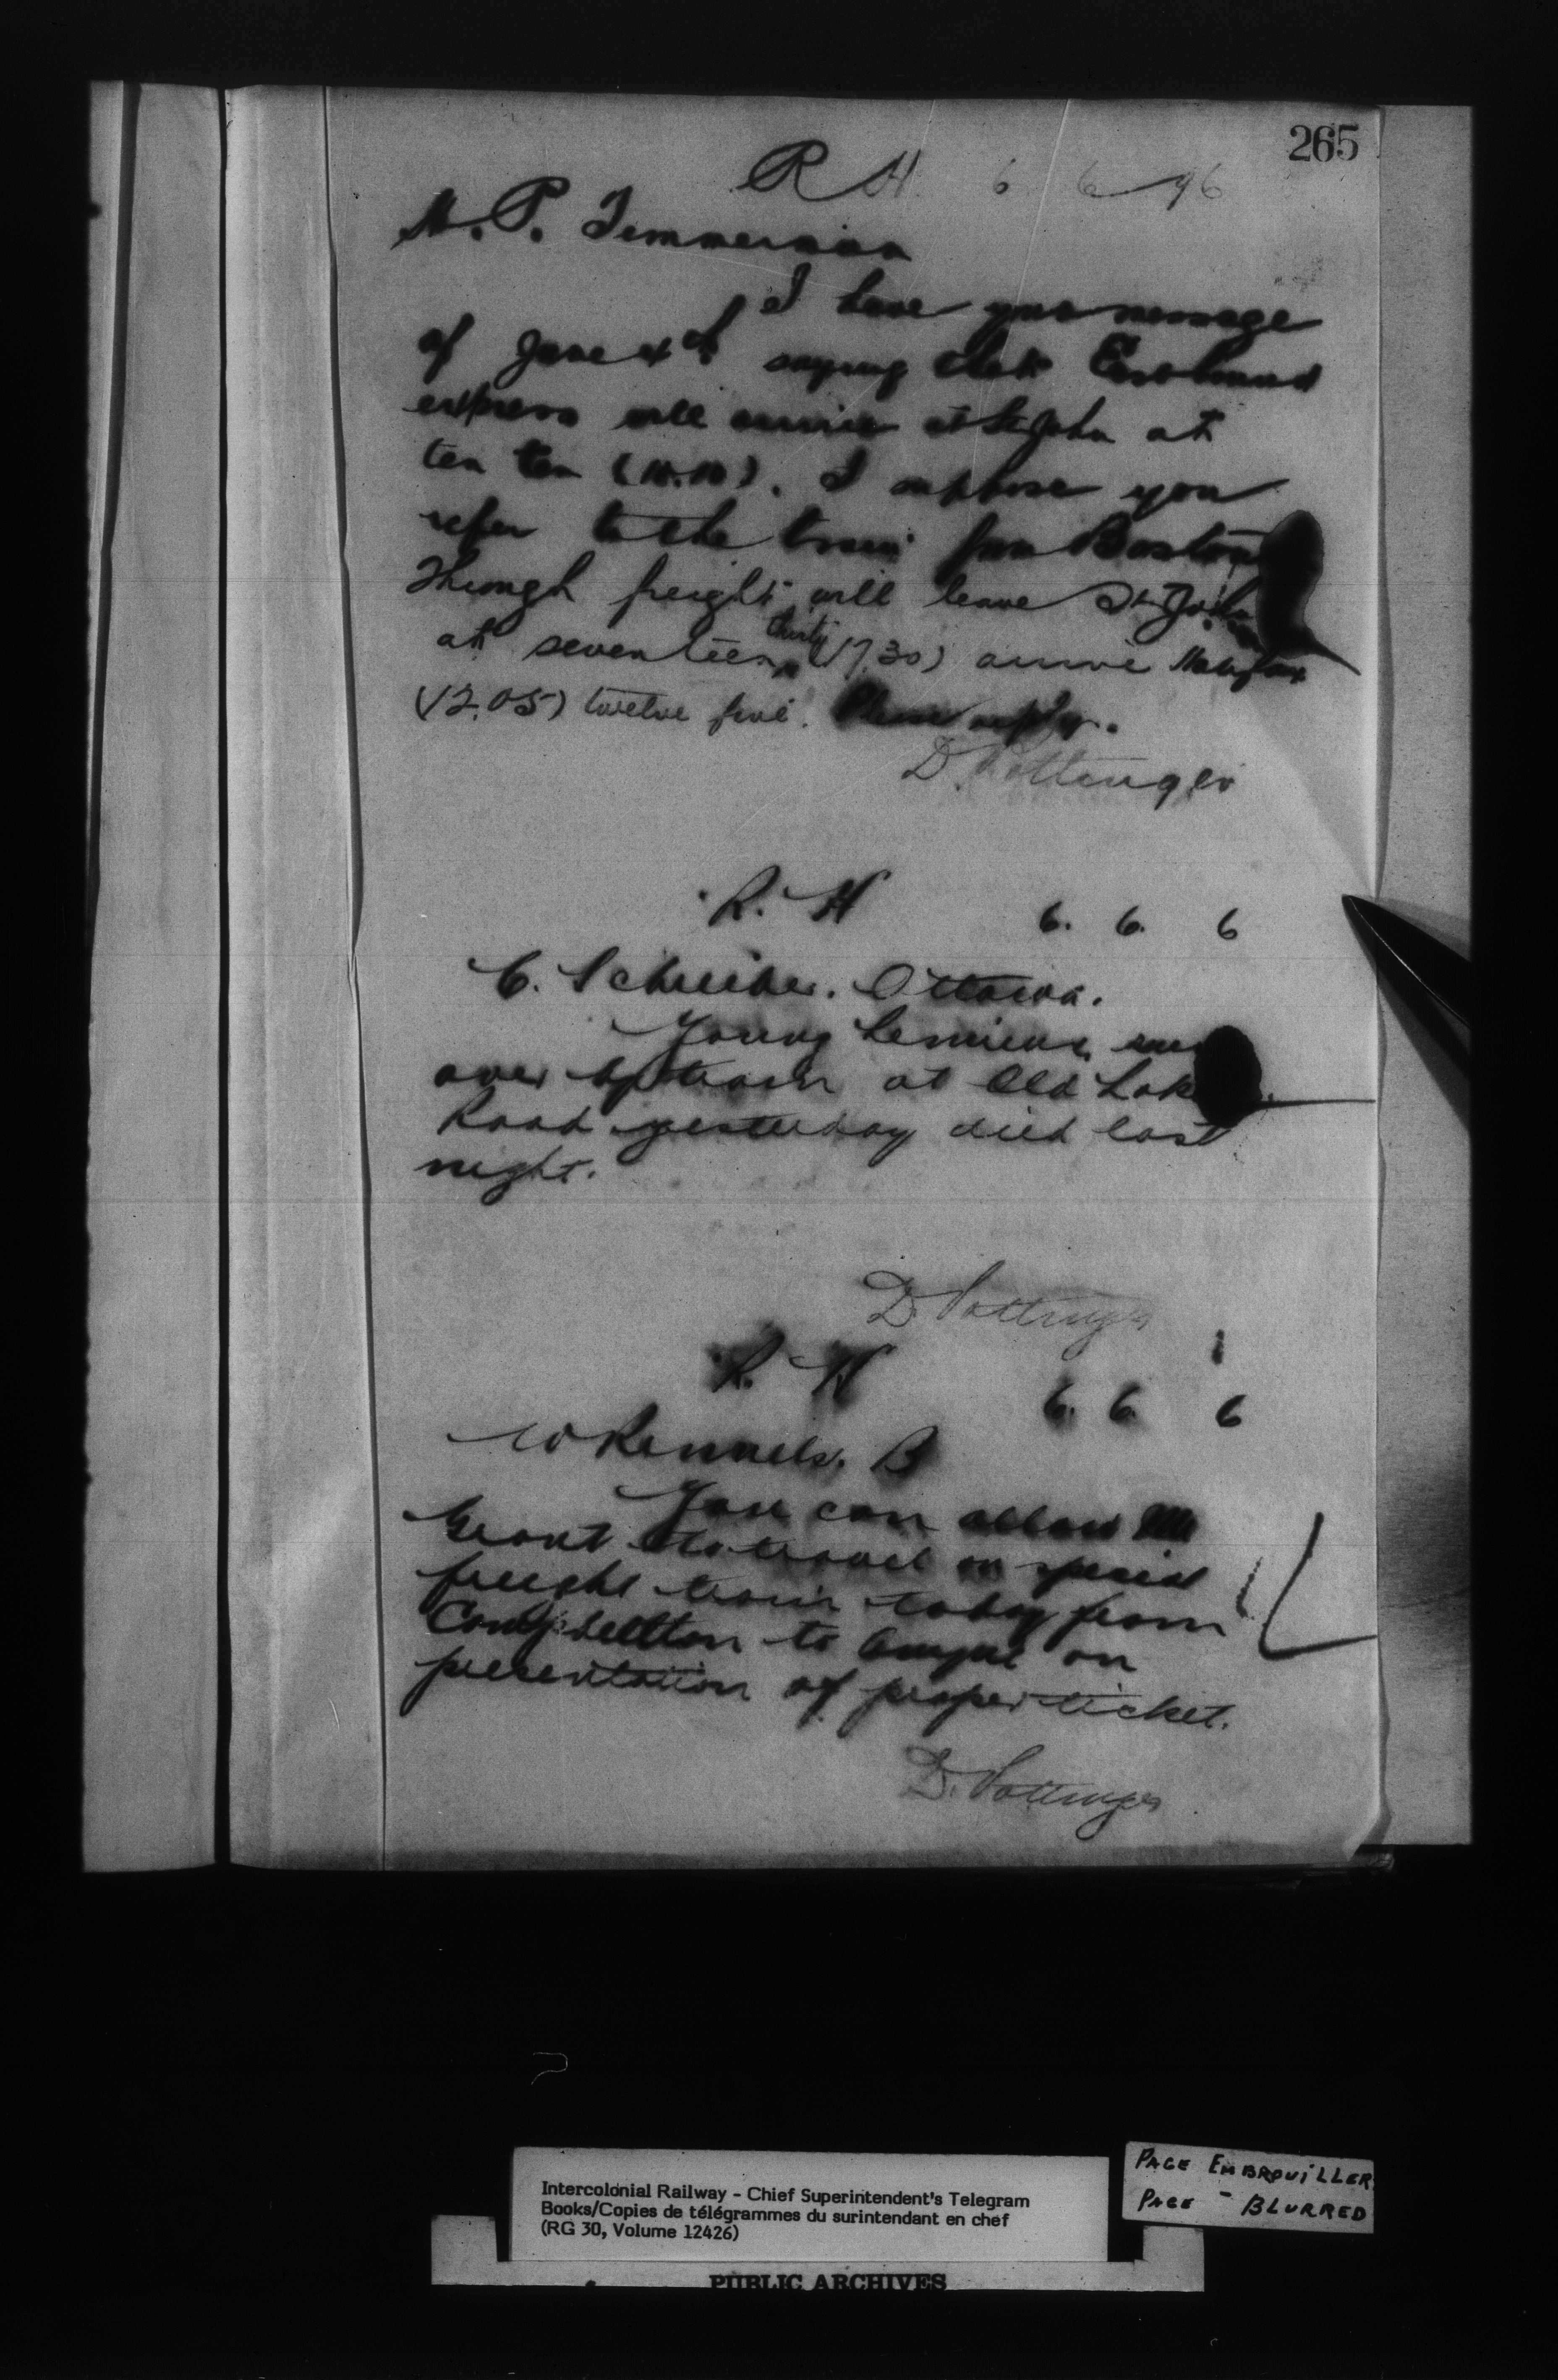 265
R H 6 6 96
H. P. Timmerman
I have your message
of June 4th saying that Eastbound
express will arrive at St John at
ten ten (10.10). I suppose you
refer to the train from Boston
Through freight will leave St John
at seventeen thirty (17.30) arrive Halifax
(12.05) twelve five. Please reply.
D. Pottinger
R. H 6. 6. 6
C. Schreiber. Ottawa.
Young Lemieux run
over by train at Old Lake
Road yesterday died last
night.
D Pottinger
R. H 6. 6. 6
W Rennels. B
You can allow Mr
Grant to travel on special
freight train today from
Campbellton to on
presentation of proper ticket.
D. Pottinger
Intercolonial Railway - Chief Superintendent's Telegram
Books/Copies de télégrammes du surintendant en chef
(RG 30, Volume 12426)
PAGE EMBROUILLER
PAGE - BLURRED
PUBLIC ARCHIVES